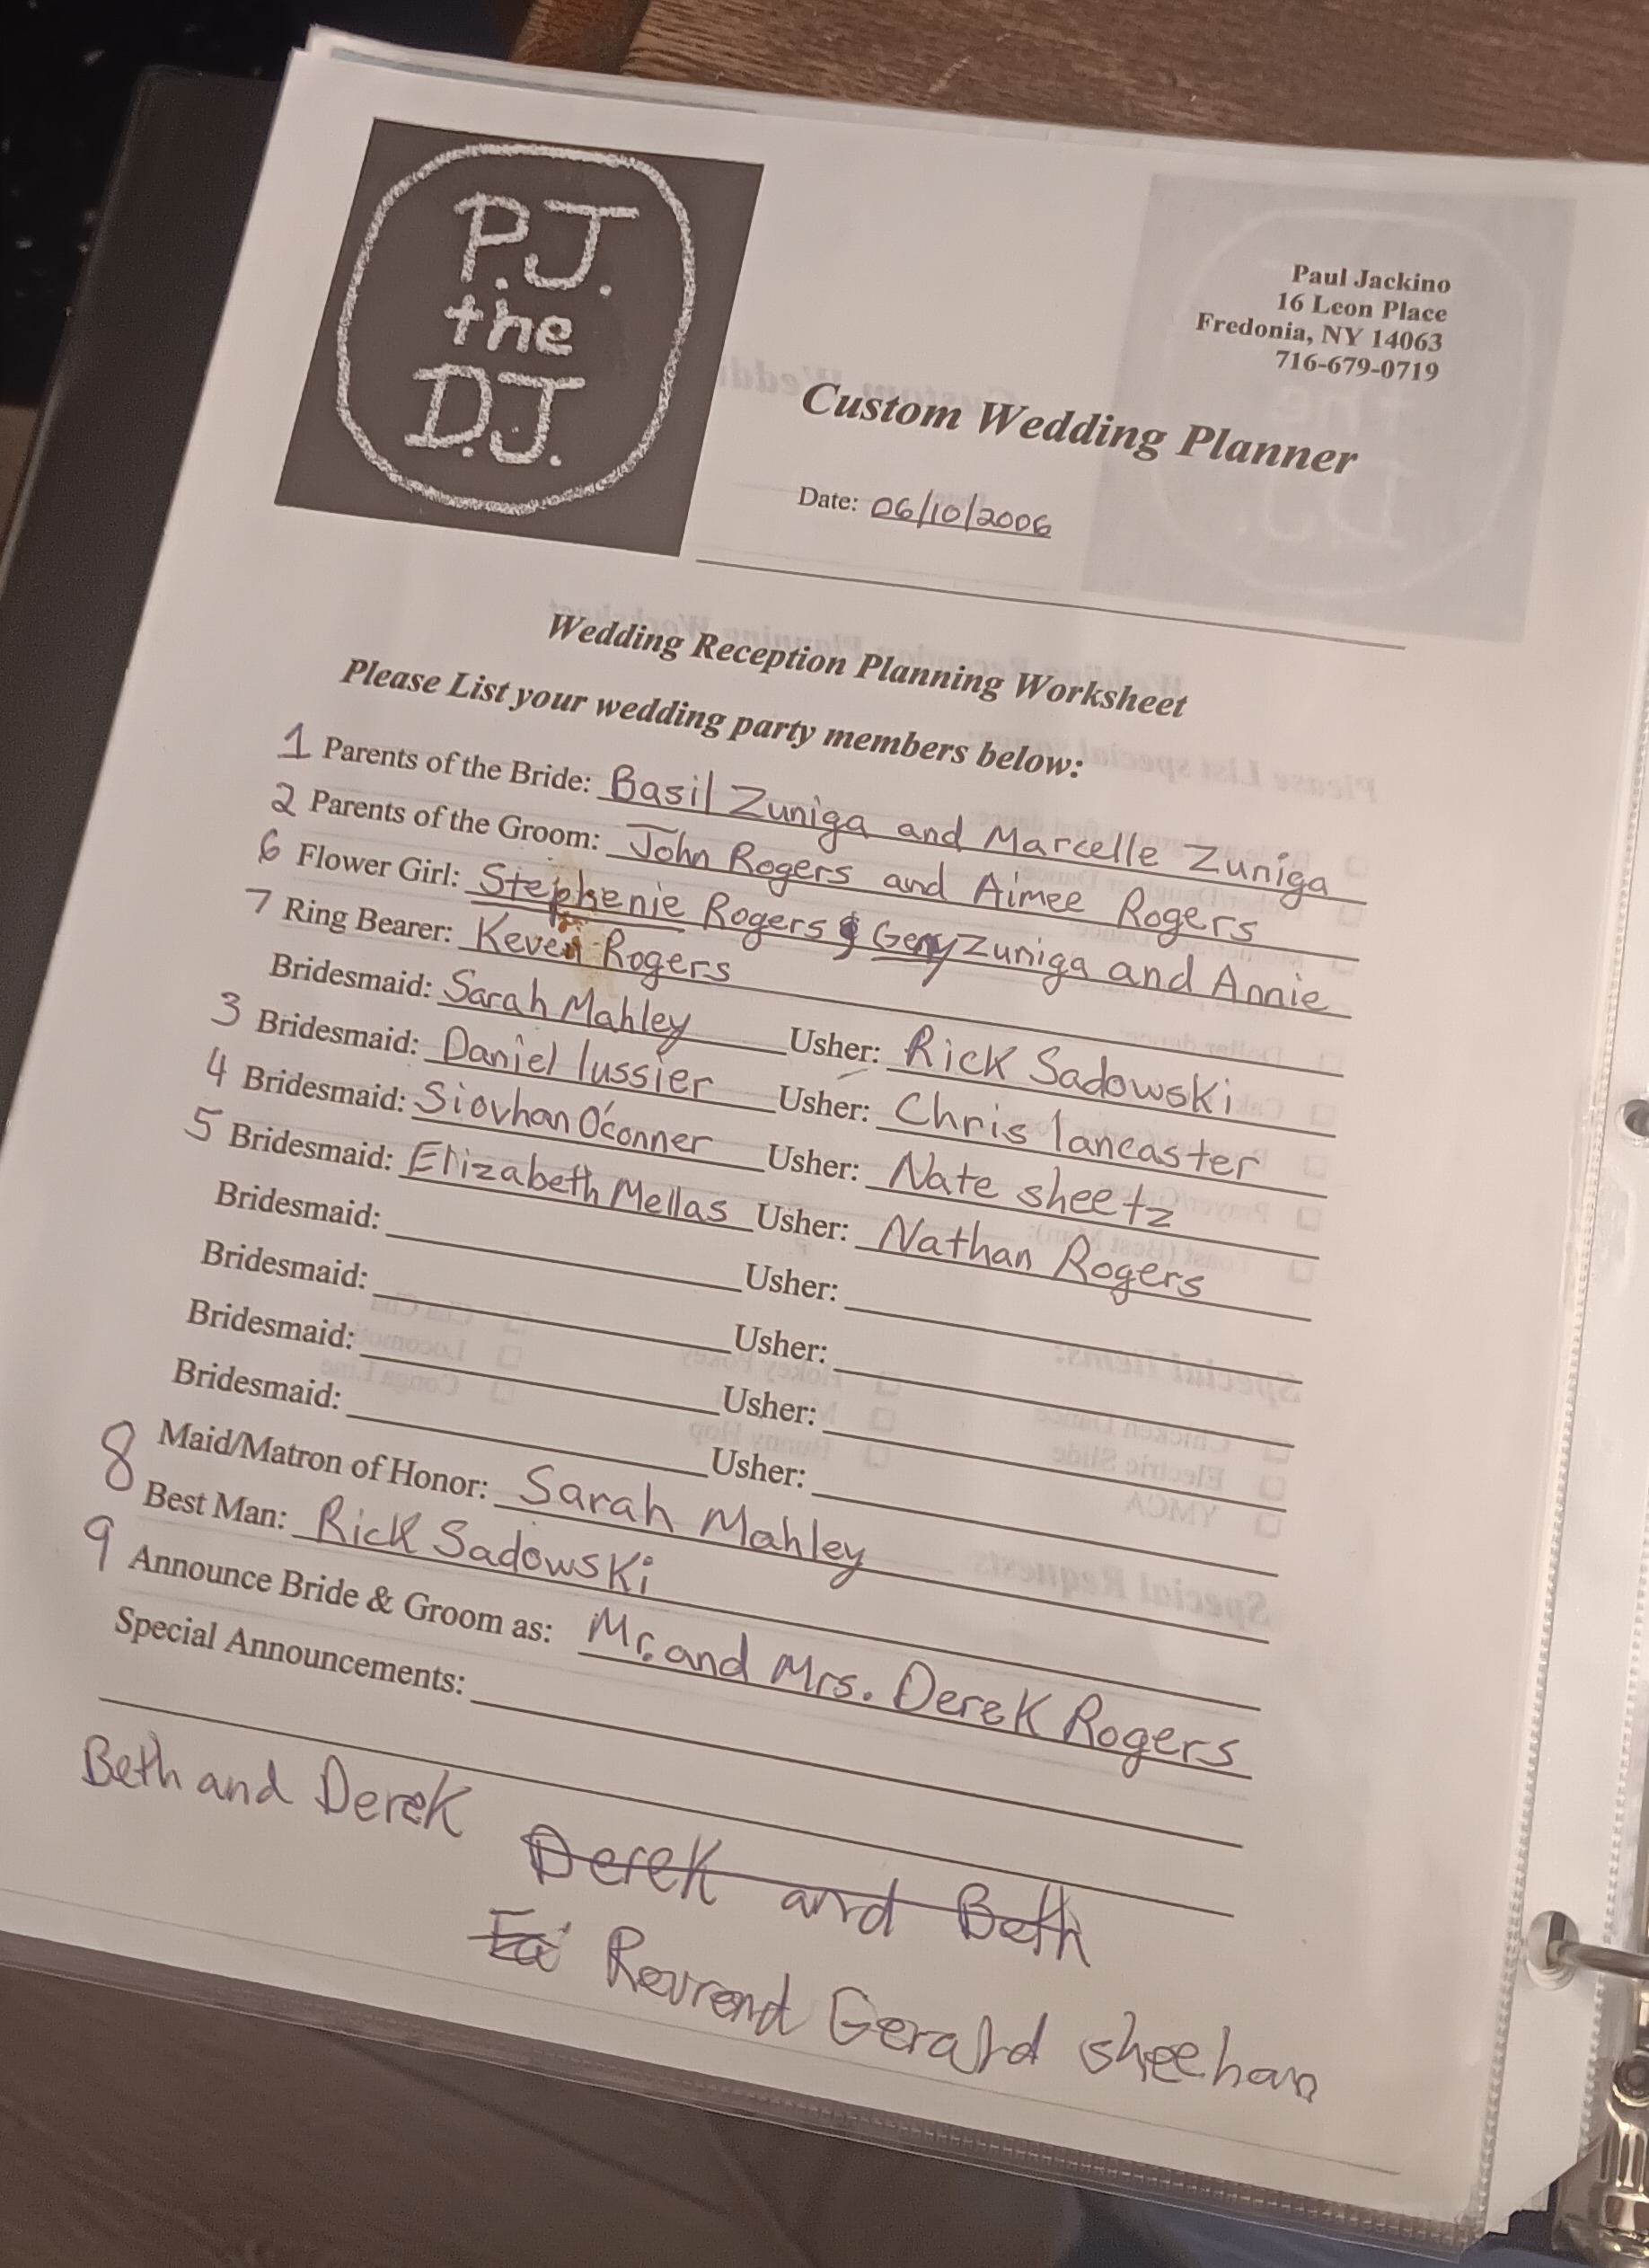 P.J.
the
D.J.
Paul Jackino
16 Leon Place
Fredonia, NY 14063
716-679-0719
Custom Wedding Planner
Date: 06/10/2006
Wedding Reception Planning Worksheet
Please List your wedding party members below:
1 Parents of the Bride: Basil Zuniga and Marcelle Zuniga
2 Parents of the Groom: John Rogers and Aimee Rogers
6 Flower Girl: Stephenie Rogers & Geny Zuniga and Annie
7 Ring Bearer: Keven Rogers
Bridesmaid: Sarah Mahley Usher: Rick Sadowski
3 Bridesmaid: Daniel lussier Usher: Chris lancaster
4 Bridesmaid: Siovhan O'conner Usher: Nate sheetz
5 Bridesmaid: Elizabeth Mellas Usher: Nathan Rogers
Bridesmaid: Usher:
Bridesmaid: Usher:
Bridesmaid: Usher:
Bridesmaid: Usher:
8 Maid/Matron of Honor: Sarah Mahley
Best Man: Rick Sadowski
9 Announce Bride & Groom as: Mr. and Mrs. Derek Rogers
Special Announcements:
Beth and Derek
Derek and Beth
Revrend Gerald sheehan